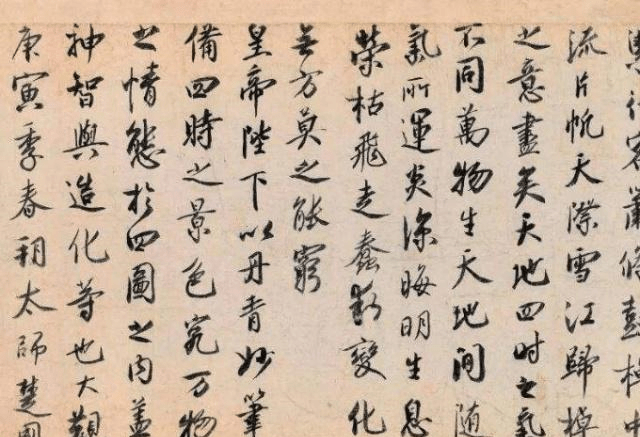 行客蕭條鼓棹中
流片帆天際雪江歸棹
之意盡矣天地四時之氣
不同萬物生天地間隨
氣所運炎涼晦明生息
榮枯飛走蠢動變化
無方莫之能窮
皇帝陛下以丹青妙筆
備四時之景色究万物
之情態於四圖之内蓋
神智與造化等也大觀
庚寅季春朔太師楚國